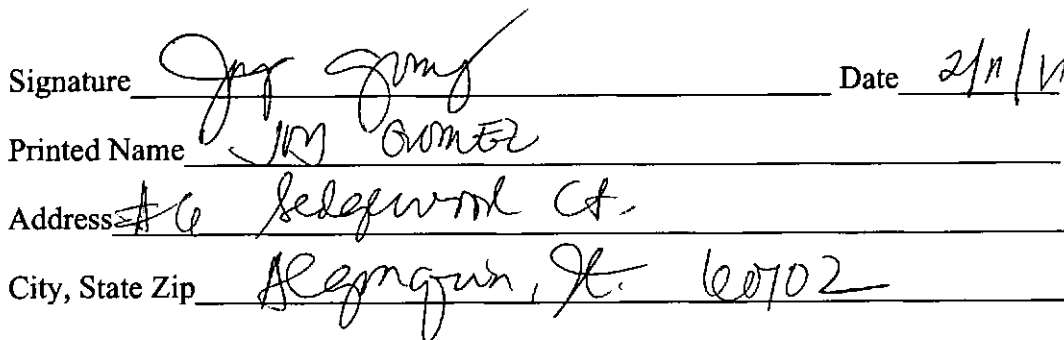 Signature Joy Gomez Date 2/11/
Printed Name JOY GOMEZ
Address #6 Sedgewood Ct.
City, State Zip Algonquin, Il. 60102